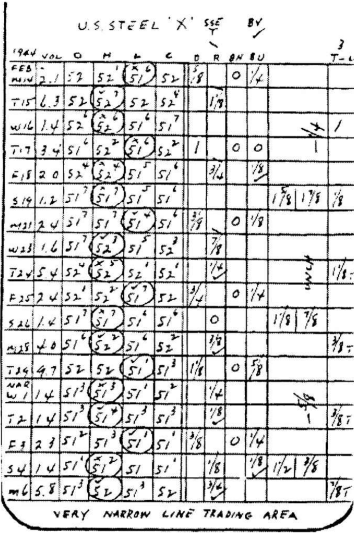 U.S. STEEL 'X' SSE BV
T ✓
3
1944 VOL O H L C D R BN BU T-L
FEB
M14 2.1 52 52¹ 51⁶ 52 5/8 0 1/4
T15 6.3 52 52⁷ 52 52⁴ 1/8
W16 1.4 52⁶ 51⁶ 51⁷ -1/4 1
T17 3.4 51⁶ 52² 51⁶ 52 1 0 0
F18 2.0 52⁴ 51⁵ 51⁶ 3/4 1/8
S19 1.2 51⁷ 51⁷ 51⁵ 51⁶ 1 5/8 1 7/8 1/8
M21 2.4 51⁷ 51⁷ 51⁴ 51⁶ 3/8 0 1/8
W23 1.6 51⁷ 51⁵ 52³ 7/8
T24 5.4 52⁴ 52¹ 52¹ 1/4
F25 2.4 52¹ 52² 51⁷ 52 3/4 0 1/4
S26 1.4 51⁷ 51⁷ 51⁶ 51⁷ 0 1 1/8 7/8
M28 4.0 51⁶ 52² 51⁶ 52² 3/8 3/8T
T29 4.7 52 52 51¹ 51³ 1 1/8 0 5/8
MAR
W1 1.4 51³ 51³ 51¹ 51² 1/4 -5/8
T2 1.4 51³ 51⁴ 51³ 51³ 1/8 3/8T
F3 2.3 51² 51³ 51¹ 51¹ 3/8 0 1/4
S4 1.4 51 51² 51 51¹ 1/8 1/8 1/2 3/8
M6 5.8 51³ 52 51³ 52 3/4 7/8T
VERY NARROW LINE TRADING AREA